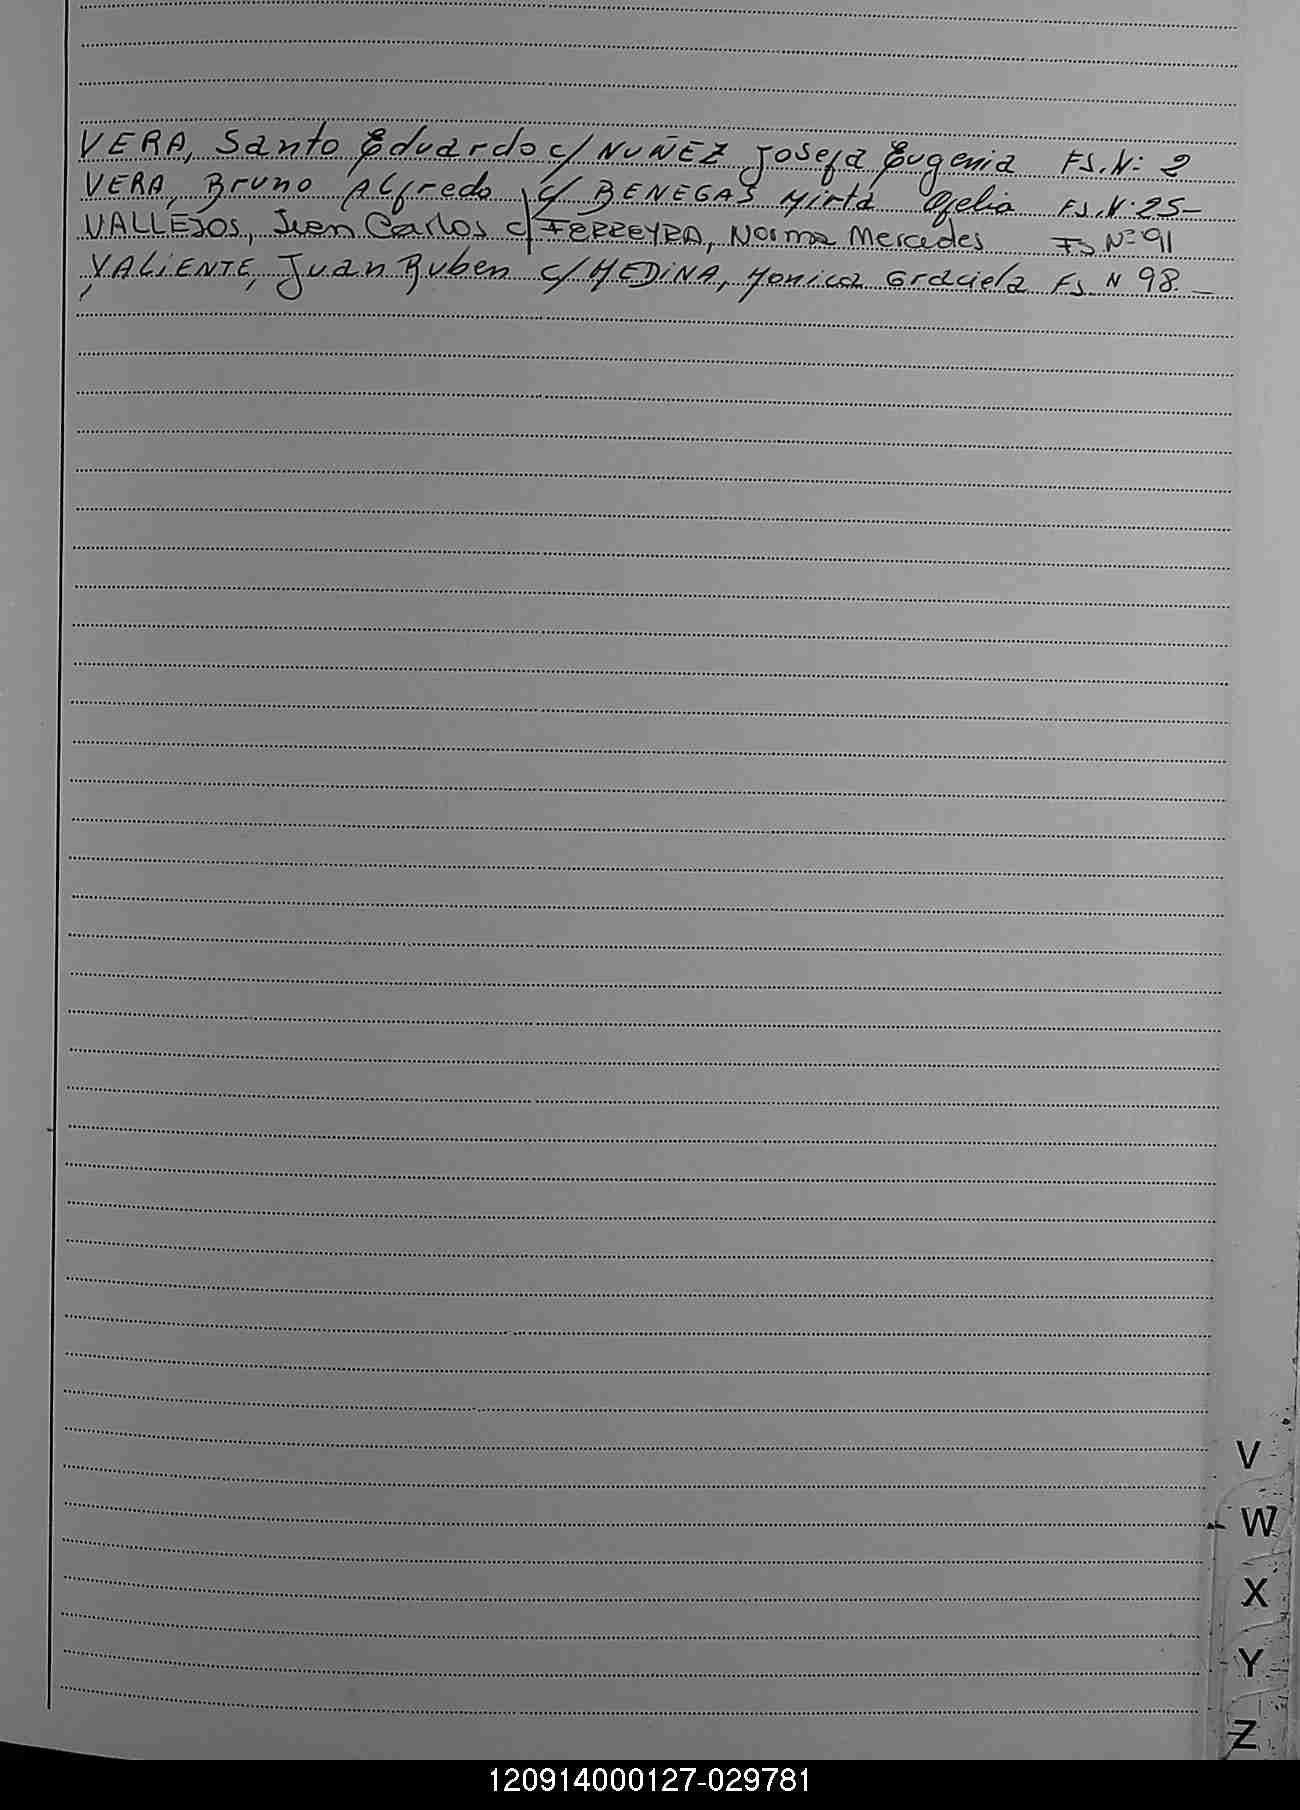 VERA, Santo Eduardo c/ NUÑEZ Josefa Eugenia FS.Nº 2
VERA, Bruno Alfredo c/ BENEGAS Mirta Ofelia FS.Nº 25-
VALLEJOS, Juan Carlos c/ FERREYRA, Norma Mercedes FS Nº 91
VALIENTE, Juan Ruben c/ MEDINA, Monica Graciela FS. N 98 -
V
W
X
Y
Z
120914000127-029781